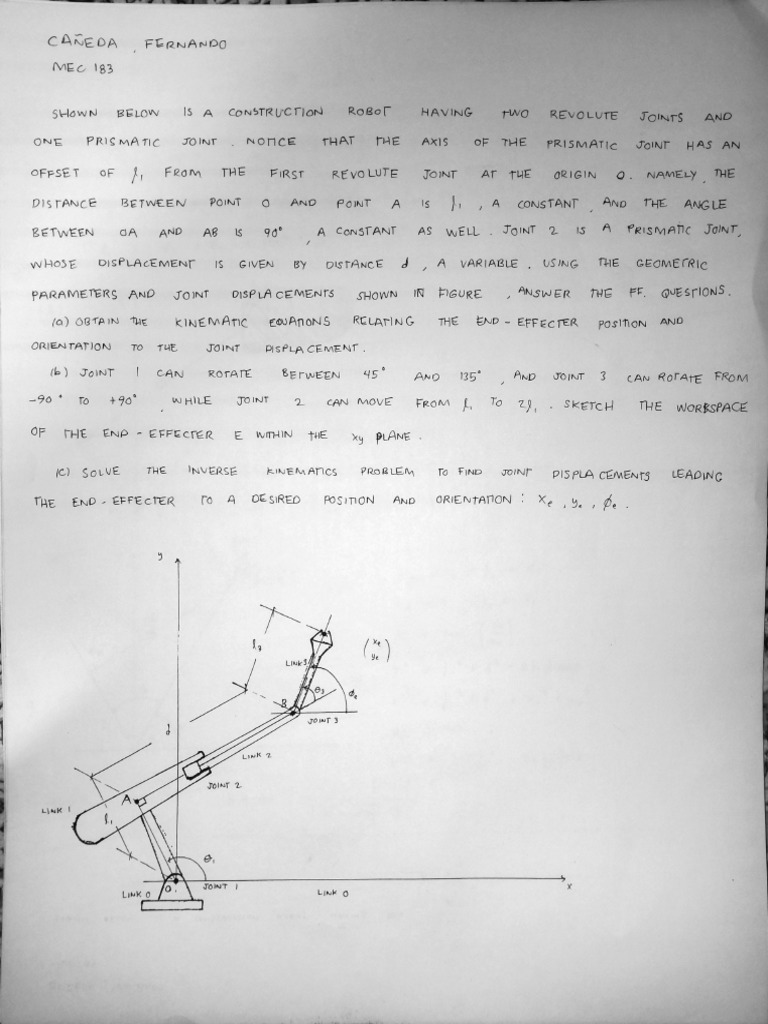 CAÑEDA, FERNANDO
MEC 183
SHOWN BELOW IS A CONSTRUCTION ROBOT HAVING TWO REVOLUTE JOINTS AND
ONE PRISMATIC JOINT. NOTICE THAT THE AXIS OF THE PRISMATIC JOINT HAS AN
OFFSET OF l₁ FROM THE FIRST REVOLUTE JOINT AT THE ORIGIN O. NAMELY, THE
DISTANCE BETWEEN POINT O AND POINT A IS l₁, A CONSTANT, AND THE ANGLE
BETWEEN OA AND AB IS 90°, A CONSTANT AS WELL. JOINT 2 IS A PRISMATIC JOINT,
WHOSE DISPLACEMENT IS GIVEN BY DISTANCE d, A VARIABLE. USING THE GEOMETRIC
PARAMETERS AND JOINT DISPLACEMENTS SHOWN IN FIGURE, ANSWER THE FF. QUESTIONS.
(a) OBTAIN THE KINEMATIC EQUATIONS RELATING THE END-EFFECTER POSITION AND
ORIENTATION TO THE JOINT DISPLACEMENT.
(b) JOINT 1 CAN ROTATE BETWEEN 45° AND 135°, AND JOINT 3 CAN ROTATE FROM
-90° TO +90°, WHILE JOINT 2 CAN MOVE FROM l₁ TO 2l₁. SKETCH THE WORKSPACE
OF THE END-EFFECTER E WITHIN THE xy PLANE.
(C) SOLVE THE INVERSE KINEMATICS PROBLEM TO FIND JOINT DISPLACEMENTS LEADING
THE END-EFFECTER TO A DESIRED POSITION AND ORIENTATION: xₑ, yₑ, ϕₑ.
y
l₃
(xₑ
yₑ)
LINK 3
θ₃
ϕₑ
B
JOINT 3
d
LINK 2
JOINT 2
A
LINK 1
l₁
θ₁
O
JOINT 1
LINK 0
LINK 0
x